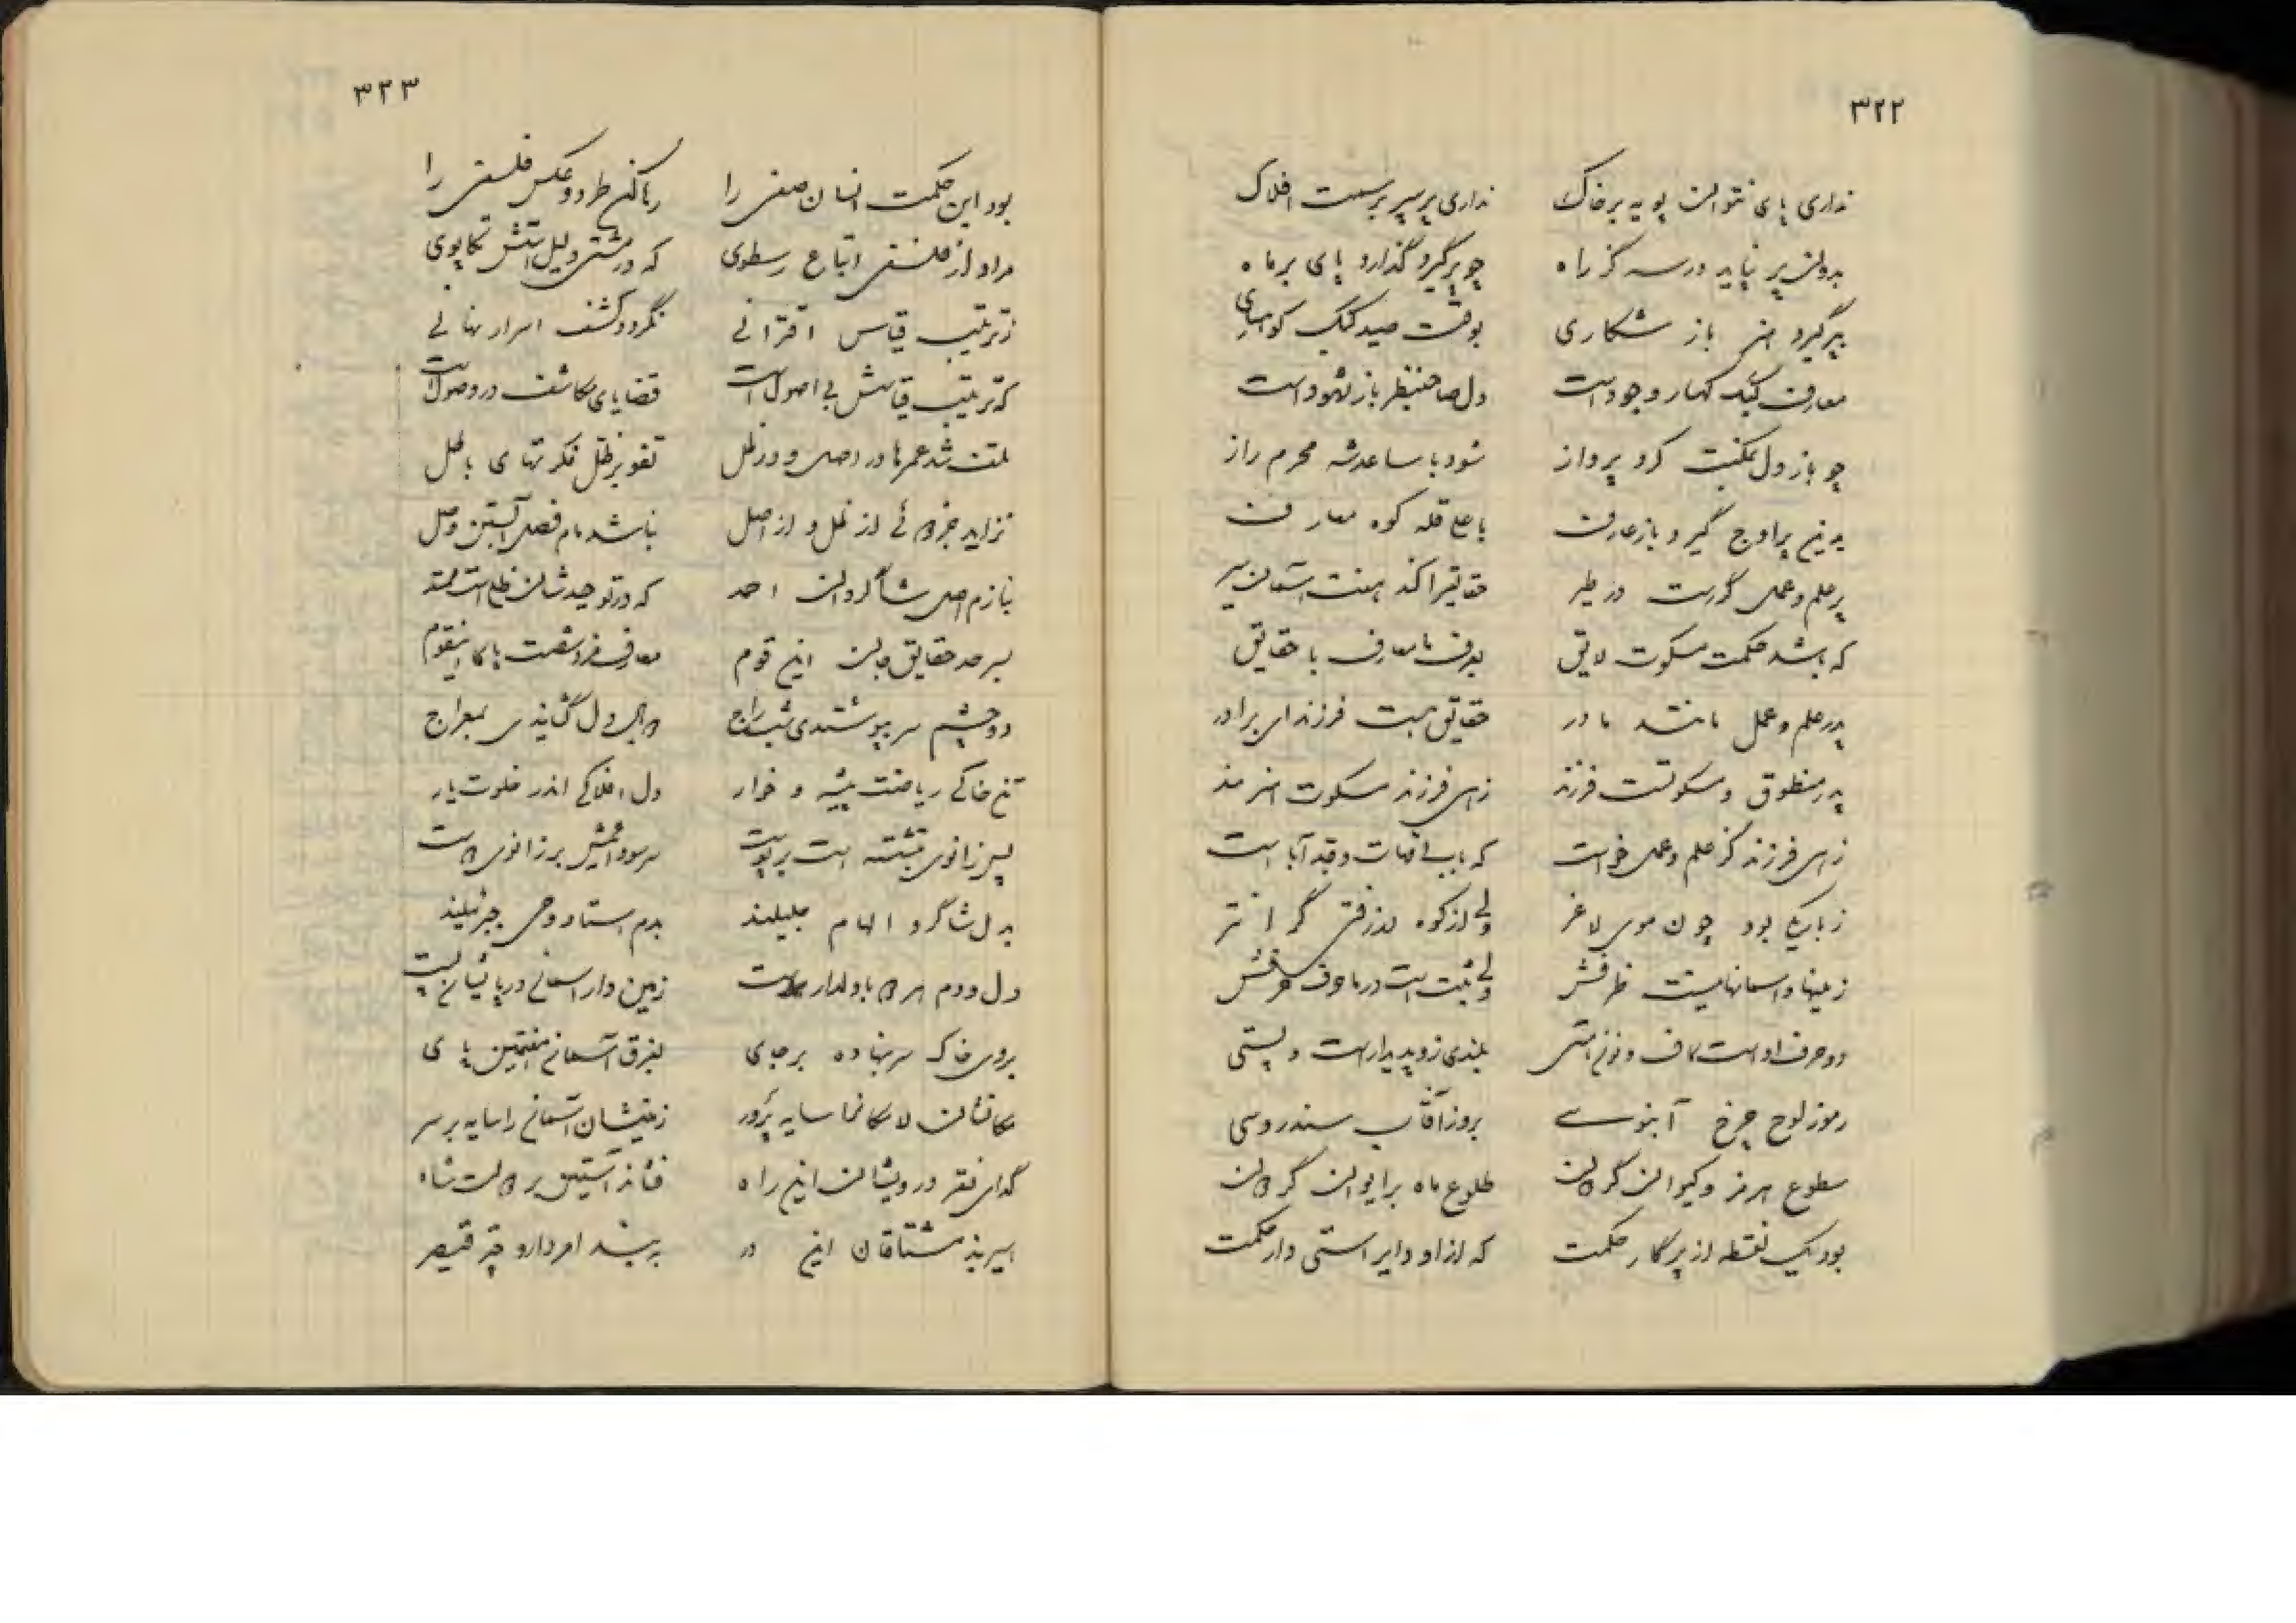 ۳۲۲
نداری پای نتوان پویه بر خاک نداری پر سپر بر سمت افلاک
بدون پر نیاید در سه گز راه چو پر گیرد گذارد پای بر ماه
بپر گیرد هنر باز شکاری بوقت صید کبک کوهساری
معارف کبک کهسار وجود است دل صاحبنظر باز شهود است
چو باز دل بمکنت کرد پرواز شود با ساعد شه محرم راز
بدین پر اوج گیرد باز عارف باعلی قله کوه معارف
پر علم و عمل گرت در طیر حقایق را کند هفت آسمان سیر
که باشد حکمت مسکوت لایق بعرف ما معارف با حقایق
پدر علم و عمل مانند مادر حقایق هست فرزند ای برادر
پدر منطوق و مسکوتست فرزند زهی فرزند مسکوت هنرمند
زهی فرزند کز علم و عمل خواست که باب امهات و جد آبا است
زباریکی بود چون موی لاغر ولی از کوه اندر فتر گرانتر
زمینها و آسمانها نیست ظرفش ولی ثبت است در ما حرف حرفش
دو حرف اوست کاف و نون هستی بلندی زو پدیدار است و پستی
رموز لوح چرخ آبنوسے بروز آفتاب سندروسی
سطوع هرمز و کیوان گردان طلوع ماه بر ایوان گردان
بود یک نقطه از پرگار حکمت که از او دایر استی دار حکمت
۳۲۳
بود این حکمت انسان صفی را رها کن طرد و عکس فلسفی را
مراد از فلسفی اتباع رسطوی که در مشتی دلیل استش تکاپوی
ز ترتیب قیاس اقترانی نگردد کشف اسرار نهانی
که ترتیب قیاسش بی اصول است قضایای مکاشف در وصول است
تلف شد عمرها در اصل و در ظل تفو بر ظل فکرتهای باطل
نزاید جز از ظل و از اصل نباشد مام فصل آبستن وصل
بنازم اصل شاگردان احمد که در توحیدشان ظل است ممتد
بسر حد حقایق جان این قوم معارف فرشست پا کا اینقوم
دو چشم سر بپوشندی شب داج دل گشایندی بمعراج
تن خاکی ریاضت پیشه و خوار دل افلاکی اندر خلوت یار
پس زانوی بنشسته است بر پوست سر سودائیش بر زانوی دوست
بدل شاگرد الهام جلیلند بدم استاد وحی جبرئیلند
دل و دم هر دو با دلدار زمین دار آسمانی در پایشان پست
بروی خاک سر بنهاده بر جای بفرق آسمان هفتمین پای
مکانشان لامکانها سایه پرور زمینشان آسمان را سایه بر سر
گدای فقر درویشان این راه فشاند آستین بر دولت شاه
اسیر بند مشتاقان این در به بند امر دارد قیصر